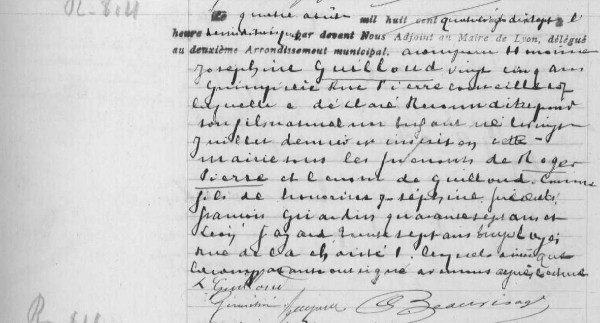 R. 811
Le quatre août mil huit cent quatre vingt dix sept à
heure de midi par devant Nous Adjoint au Maire de Lyon, délégué
au deuxième Arrondissement municipal. a comparu Honorine
Joséphine Guilloud vingt cinq ans
Guimpière Rue Pierre Corneille
laquelle a déclaré Reconnaître pour
son fils naturel un enfant né le vingt
juillet dernier inscrit en cette
mairie sous les prénoms de Roger
Pierre et le nom de Guilloud. Comme
fils de honorine joséphine. présents
françois Girardin quarante sept ans et
Léon Fayard trente sept ans Employés
Rue de la charité 1. lesquels ainsi que
la comparante ont signé avec nous après lecture
Guilloud
Girardin Beauvisage
R. 811